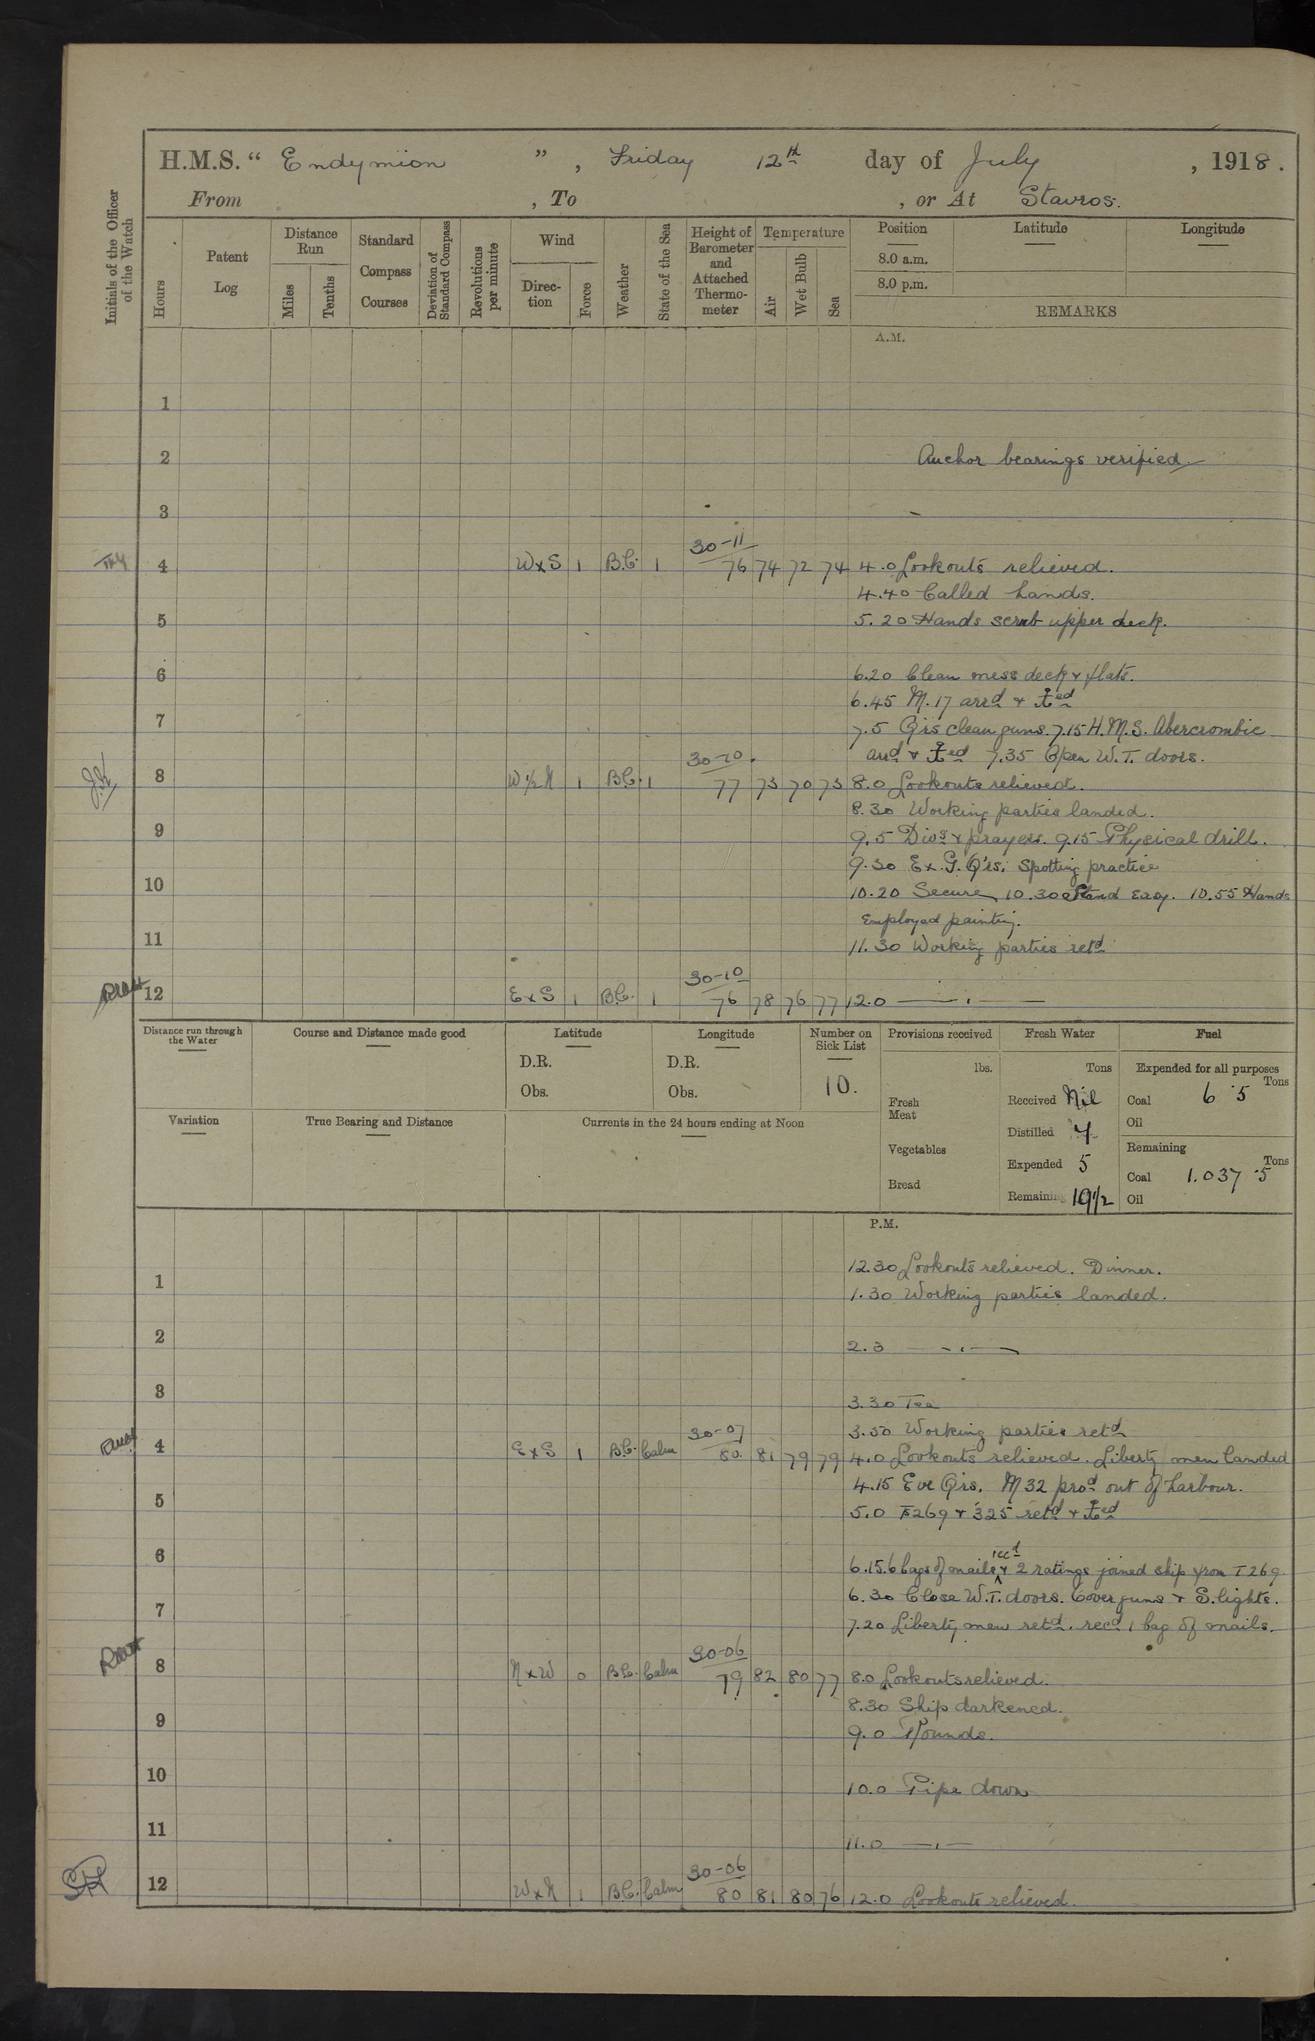 H.M.S. “ Endymion ” , Friday 12th day of July , 1918 .
From , To , or At Stavros.
Initials of the Officer of the Watch
Hours
Patent Log
Distance Run
Miles
Tenths
Standard Compass Courses
Deviation of Standard Compass
Revolutions per minute
Wind
Direction
Force
Weather
State of the Sea
Height of Barometer and Attached Thermometer
Temperature
Air
Wet Bulb
Sea
Position
8.0 a.m.
8.0 p.m.
Latitude
Longitude
REMARKS
A.M.
1
2 Anchor bearings verified
3
30-11
4 WxS 1 B.C. 1 76 74 72 74 4.0 Lookouts relieved.
4.40 Called hands.
5 5.20 Hands scrub upper deck.
6 6.20 Clean mess deck & flats.
6.45 M.17 arrd & ⚓ed
7 7.5 Qrs clean guns. 7.15 H.M.S. Abercrombie
arrd & ⚓ed 7.35 Open W.T. doors.
30-10
8 W½N 1 B.C. 1 77 73 70 73 8.0 Lookouts relieved.
8.30 Working parties landed.
9 9.5 Divs & prayers. 9.15 Physical drill.
9.30 Ex. G. Q'rs. Spotting practice
10 10.20 Secure, 10.30 Stand Easy. 10.55 Hands
Employed painting.
11 11.30 Working parties retd
30-10
12 ExS 1 B.C. 1 76 78 76 77 12.0 — " —
Distance run through the Water
Course and Distance made good
Latitude
D.R.
Obs.
Longitude
D.R.
Obs.
Number on Sick List
10.
Provisions received
lbs.
Fresh Meat
Vegetables
Bread
Fresh Water
Tons
Received Nil
Distilled 4
Expended 5
Remaining 191/2
Fuel
Expended for all purposes
Tons
Coal 6 .5
Oil
Remaining
Tons
Coal 1.037 .5
Oil
Variation
True Bearing and Distance
Currents in the 24 hours ending at Noon
P.M.
12.30 Lookouts relieved. Dinner.
1 1.30 Working parties landed.
2 2.3 — " —
3 3.30 Tea
3.50 Working parties retd
30-07
4 ExS 1 B.C. Calm 80. 81 79 79 4.0 Lookouts relieved. Liberty men landed
4.15 Eve Qrs. M32 prod out of harbour.
5 5.0 T269 & 325 retd & ⚓ed
6 6.15. 6 bags of mails recd & 2 ratings joined ship from T269
6.30 Close W.T. doors. Cover guns & S. lights.
7 7.20 Liberty men retd. recd 1 bag of mails.
30-06
8 NxW 0 B.C. Calm 79 82 80 77 8.0 Lookouts relieved.
8.30 Ship darkened.
9 9.0 Rounds.
10 10.0 Pipe down
11 11.0 — " —
30-06
12 WxN 1 B.C. Calm 80 81 80 76 12.0 Lookouts relieved.